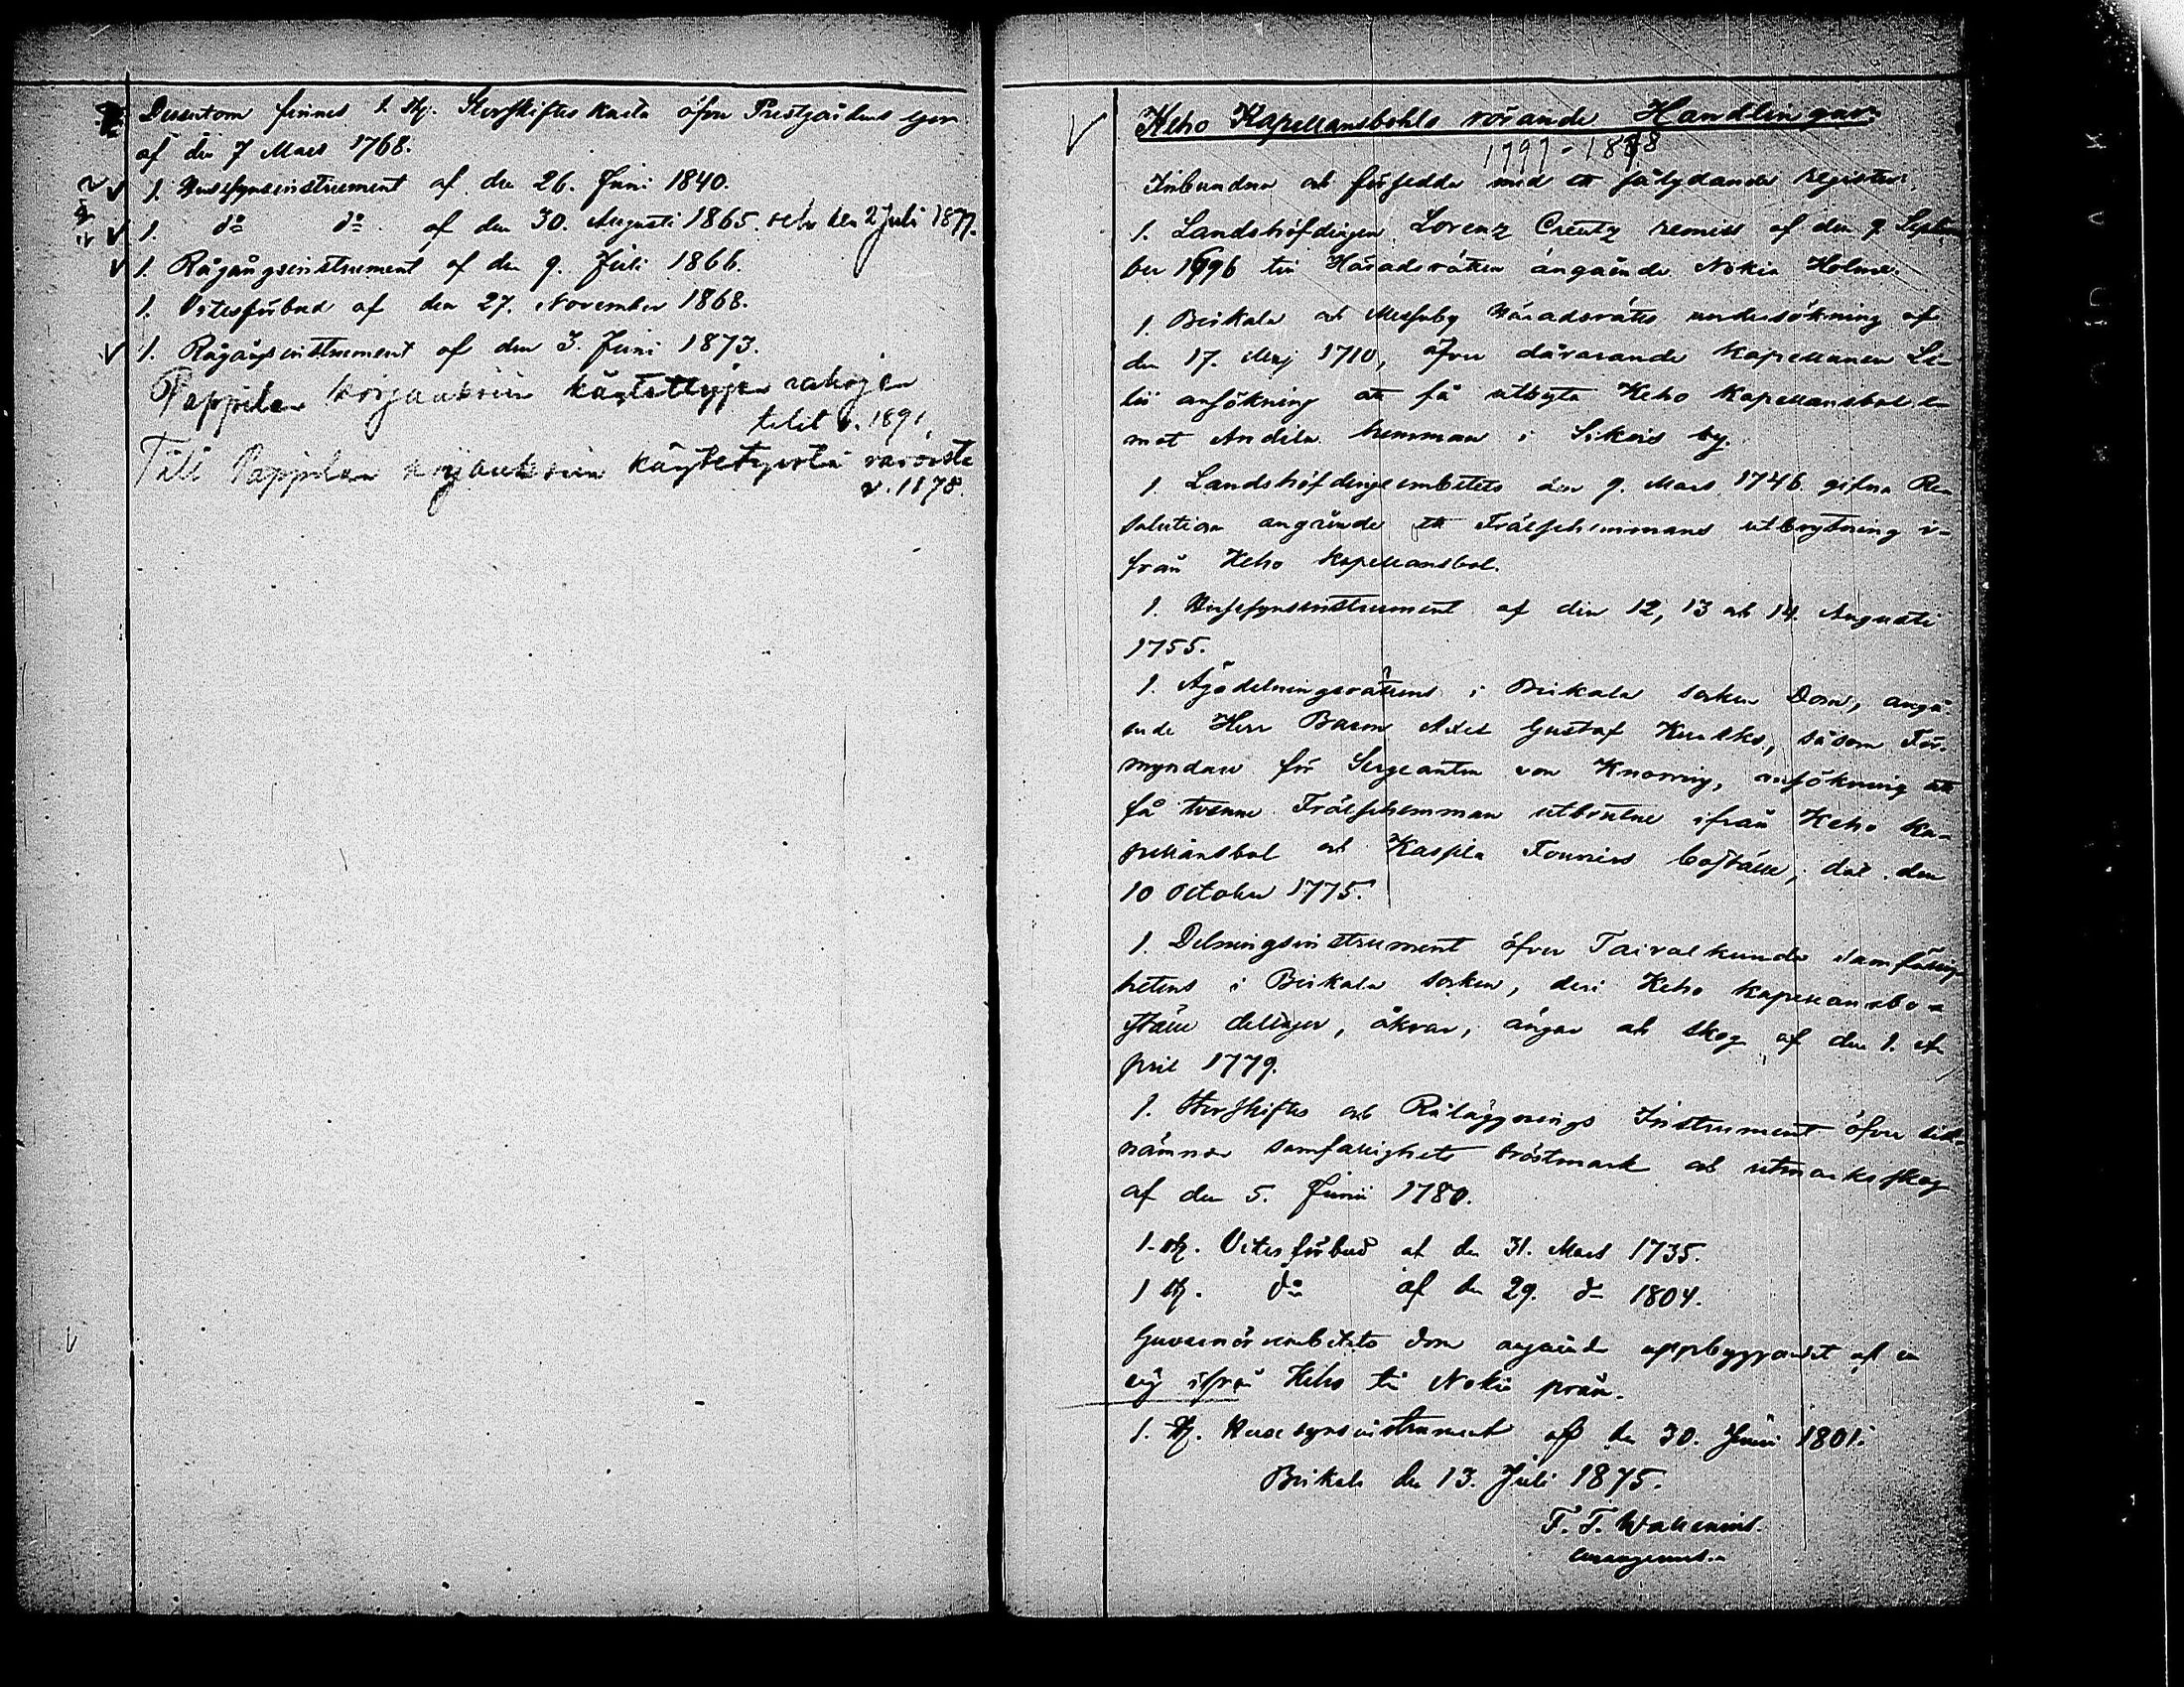 Dessutom finnes 1. st. Storskiftes karta öfver Prestgårdens egor
af den 7 Mars 1768.
1. Husesynsinstrument af den 26. Juni 1840.
1. do do. af den 30. Augusti 1865. och den 2 Juli 1877.
1. Rågångsinstrument af den 9. Juli 1866.
1. Vitesförbud af den 27. November 1868.
1. Rågångsinstrument af den 3. Juni 1873.
Pappilan korjauksiin käytettyjen rahojen
tilit v. 1891.
Tili Pappilan korjauksiin käytetyistä varoista
v. 1878.
Keho Kapellansbohls rörande Handlingar.
1797-1878
Inbundna och försedda med ett sålydande register.
1. Landshöfdingen Lorenz Creutz remiss af den 9 Septem
ber 1696 till Häradsrätten angående Nokia Holme.
1. Birkala och Messuby Häradsrätts undersökning af
den 17. Maj 1710, öfver dåvarande Kapellanen
ansökning att få utbyta Keho Kapellansbol e-
mot Andila hemman i by.
1. Landshöfdingeembetets den 9. Mars 1746 gifna Re
solution angående ett Frälsehemmans utbrytning i-
från Keho Kapellansbol.
1. Husesynsinstrument af den 12, 13 och 14. Augusti
1755.
1. Ägodelningsrättens i Birkala socken Dom, angå-
ende Herr Baron Axel Gustaf Kurcks, såsom För-
myndare för Sergeanten von Knorring, ansökning att
få tvenne Frälsehemman utbrutne ifrån Keho Ka-
pellansbol och Kaspla Fouriers boställe, dat. den
10 October 1775.
1. Delningsinstrument öfver Taivalkunda samfällig
hetens i Birkala socken, deri Keho kapellansbo-
ställe deltager, åkrar, ängar och skog af den 1. A-
pril 1779.
1. Storskiftes och Råläggnings Instrument öfver
nämnde samfällighets tröstmark och utmarksskog
af den 5. Junii 1780.
1. st. Vitesförbud af den 31. Mars 1735.
1 st. do af den 29. do 1804.
Guvernörsembetets dom angående uppbyggandet af en
väg ifrån Keho till Nokia
1. st. Husesynsinstrument af den 30. Juni 1801.
Birkala den 13. Juli 1875.
F. T. Wallenius.